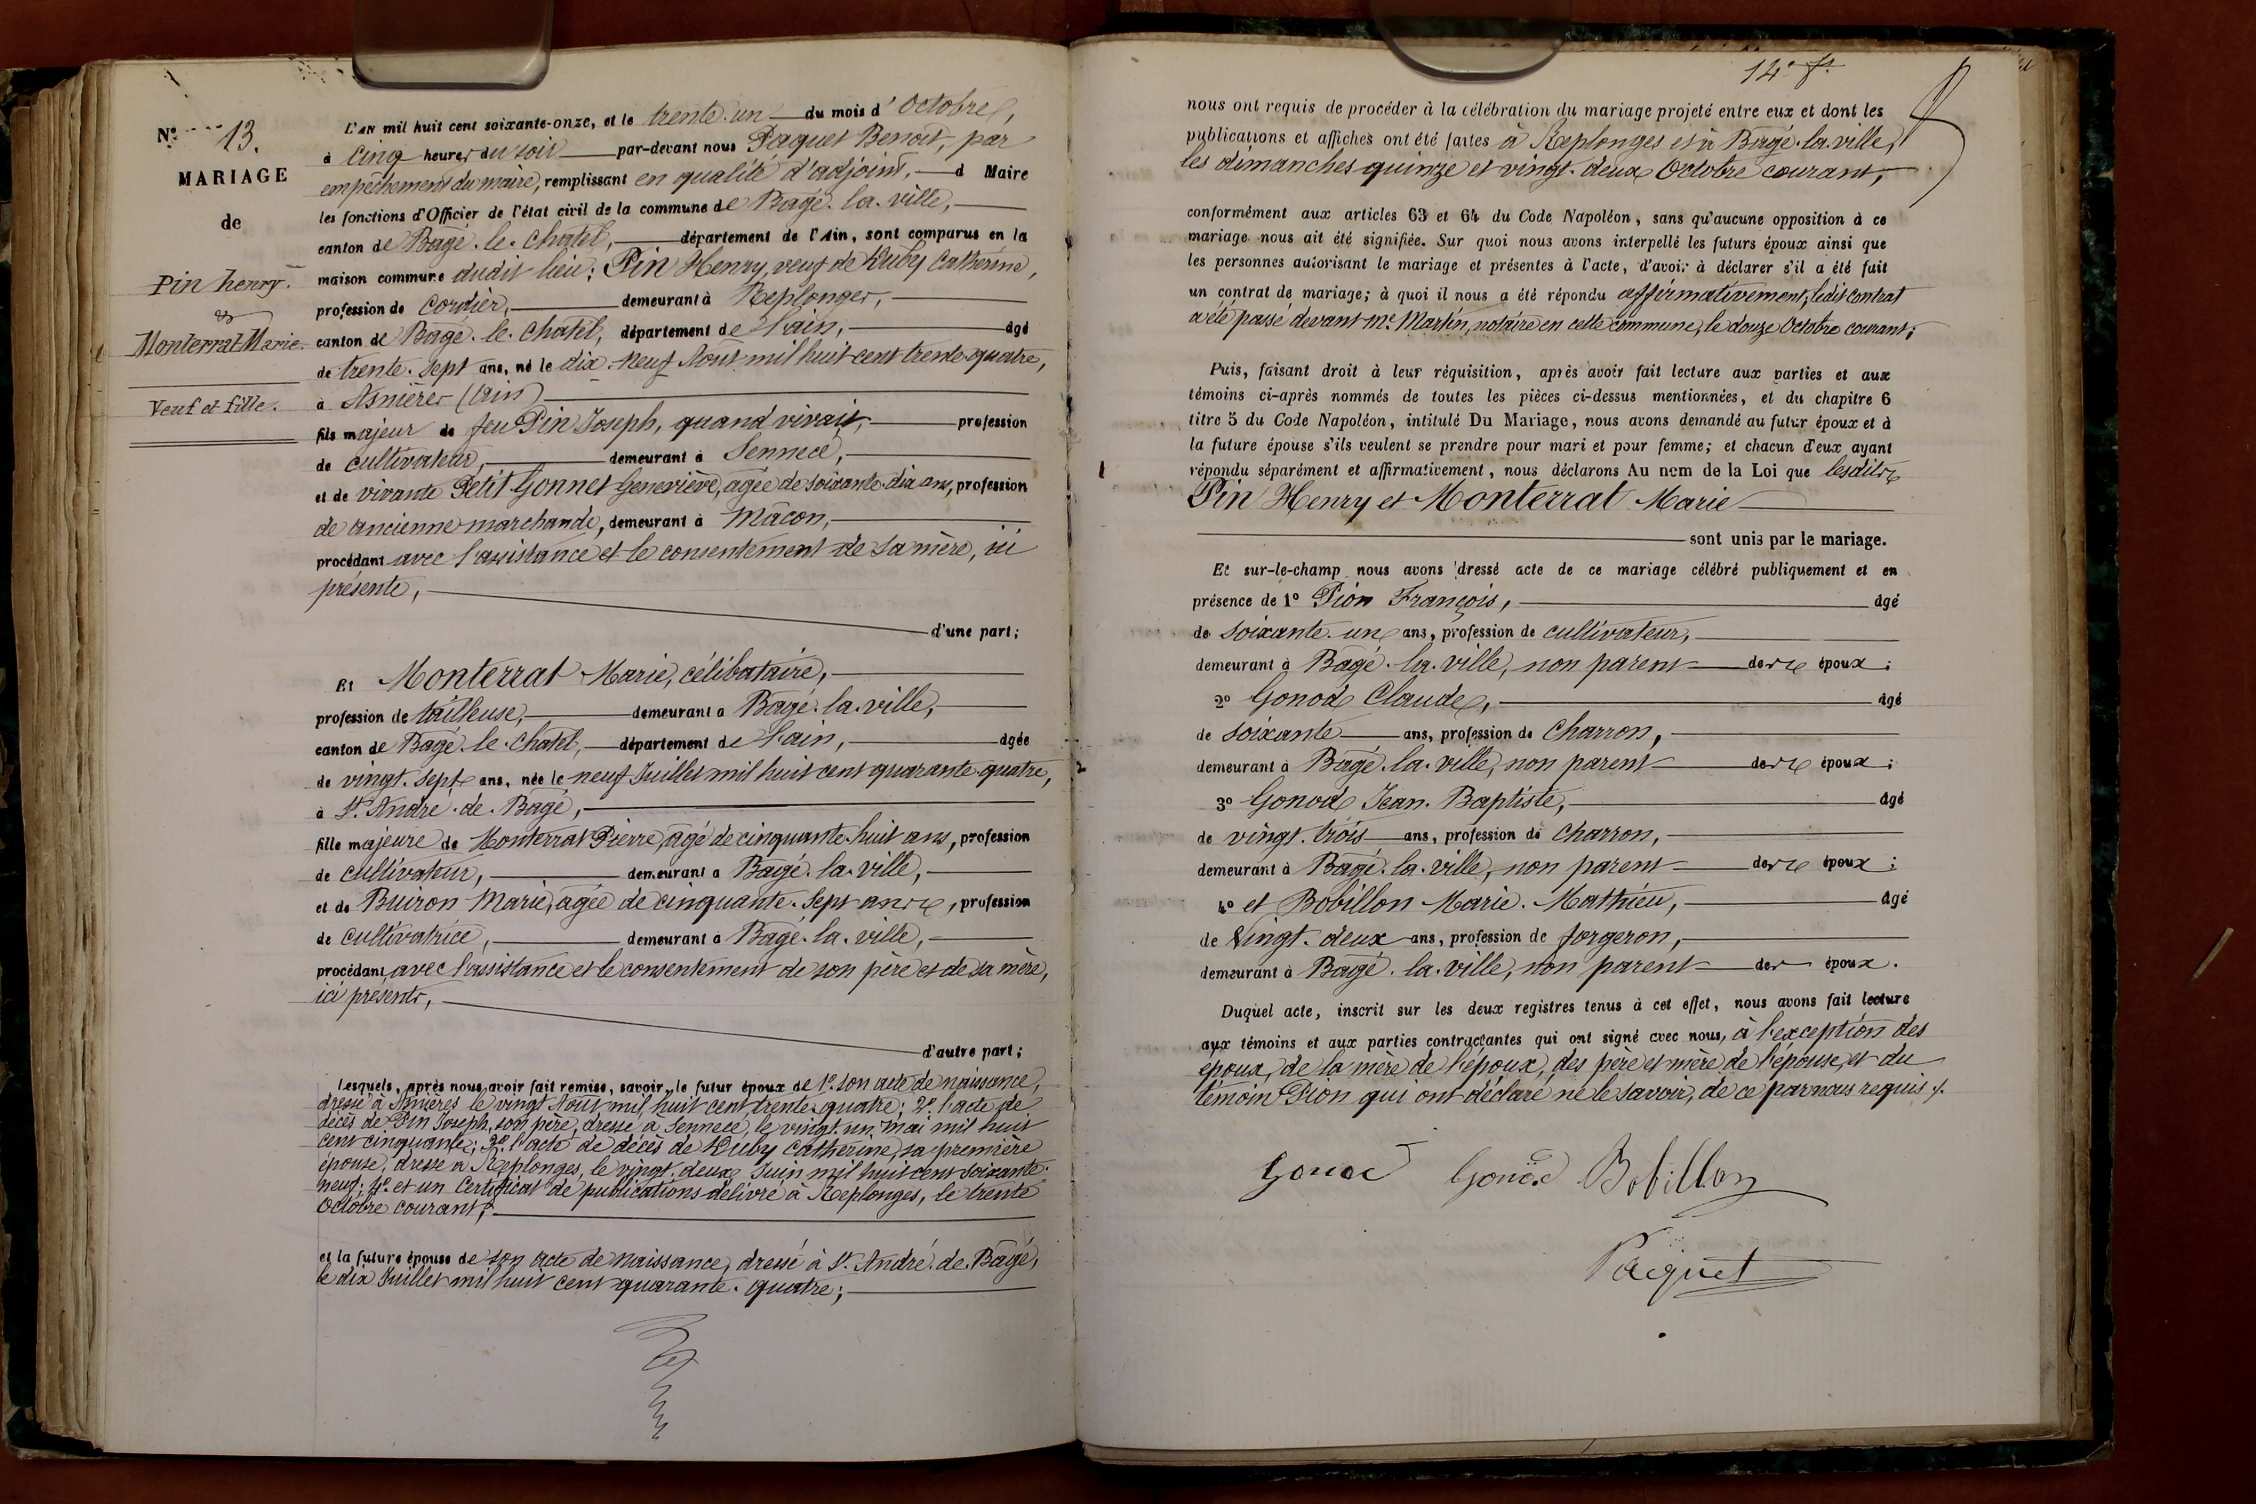 N.° 13.
MARIAGE
de
Pin henry.
&
Monterrat Marie.
Veuf et fille.
L'AN mil huit cent soixante-onze, et le trente-un du mois d'Octobre,
à Cinq heures du soir par-devant nous Paquet Benoît, par
empêchement du maire, remplissant en qualité d'adjoint, d Maire
les fonctions d'Officier de l'état civil de la commune de Bagé-la-ville,
canton de Bagé-le-Chatel, département de l'Ain, sont comparus en la
maison commune dudit lieu; Pin Henry, veuf de Duby Catherine,
profession de Cordier, demeurant à Replonges,
canton de Bagé-le-Chatel, département de l'ain, âgé
de trente-sept ans, né le dix-neuf Août mil huit cent trente-quatre,
à Asnières (Ain)
fils majeur de feu Pin Joseph, quand vivait, profession
de cultivateur, demeurant à Sennecé,
et de vivante Petit Gonnet Geneviève, agée de soixante-dix ans, profession
de ancienne marchande, demeurant à Mâcon,
procédant avec l'assistance et le consentement de sa mère, ici
présente,
d'une part;
Et Monterrat Marie, célibataire,
profession de tailleuse, demeurant à Bagé-la-ville,
canton de Bagé-le-Chatel, département de l'ain, âgée
de vingt-sept ans, née le neuf Juillet mil huit cent quarante-quatre,
à St. André-de-Bagé,
fille majeure de Monterrat Pierre, agé de cinquante-huit ans, profession
de cultivateur, demeurant à Bagé-la-ville,
et de Buiron Marie, agée de cinquante-sept ans, profession
de cultivatrice, demeurant à Bagé-la-ville,
procédant avec l'assistance et le consentement de son père et de sa mère,
ici présents,
d'autre part;
Lesquels, après nous avoir fait remise, savoir, le futur époux de 1° son acte de naissance,
dressé à Asnières le vingt Août mil huit cent trente-quatre; 2° l'acte de
décès de Pin Joseph, son père, dressé à Sennecé, le vingt-un mai mil huit
cent cinquante; 3° l'acte de décès de Duby Catherine, sa première
épouse, dressé à Replonges, le vingt-deux Juin mil huit cent soixante-
neuf; 4° et un Certificat de publications délivré à Replonges, le trente
Octobre courant;
et la future épouse de son acte de naissance, dressé à St. André-de-Bagé,
le dix Juillet mil huit cent quarante-quatre;
14e ft.
nous ont requis de procéder à la célébration du mariage projeté entre eux et dont les
publications et affiches ont été faites à Replonges et à Bagé-la-ville,
les dimanches quinze et vingt-deux Octobre courant,
conformément aux articles 63 et 64 du Code Napoléon, sans qu'aucune opposition à ce
mariage nous ait été signifiée. Sur quoi nous avons interpellé les futurs époux ainsi que
les personnes autorisant le mariage et présentes à l'acte, d'avoir à déclarer s'il a été fait
un contrat de mariage; à quoi il nous a été répondu affirmativement, ledit contrat
a été passé devant Me. Martin, notaire en cette commune, le douze Octobre courant;
Puis, faisant droit à leur réquisition, après avoir fait lecture aux parties et aux
témoins ci-après nommés de toutes les pièces ci-dessus mentionnées, et du chapitre 6
titre 5 du Code Napoléon, intitulé Du Mariage, nous avons demandé au futur époux et à
la future épouse s'ils veulent se prendre pour mari et pour femme; et chacun d'eux ayant
répondu séparément et affirmativement, nous déclarons Au nom de la Loi que lesdits
Pin Henry et Monterrat Marie
sont unis par le mariage.
Et sur-le-champ nous avons dressé acte de ce mariage célébré publiquement et en
présence de 1° Pion François, âgé
de soixante-un ans, profession de cultivateur,
demeurant à Bagé-la-ville, non parent des époux;
2° Gonod Claude, âgé
de soixante ans, profession de Charron,
demeurant à Bagé-la-ville, non parent des époux;
3° Gonod Jean-Baptiste, âgé
de vingt-trois ans, profession de Charron,
demeurant à Bagé-la-ville, non parent des époux;
4° et Bobillon Marie-Mathieu, âgé
de Vingt-deux ans, profession de forgeron,
demeurant à Bagé-la-ville, non parent des époux.
Duquel acte, inscrit sur les deux registres tenus à cet effet, nous avons fait lecture
aux témoins et aux parties contractantes qui ont signé avec nous, à l'exception des
époux, de la mère de l'époux, des père et mère de l'épouse, et du
témoin Pion qui ont déclaré ne le savoir, de ce par nous requis ./.
Gonod Gonod Bobillon
Paquet